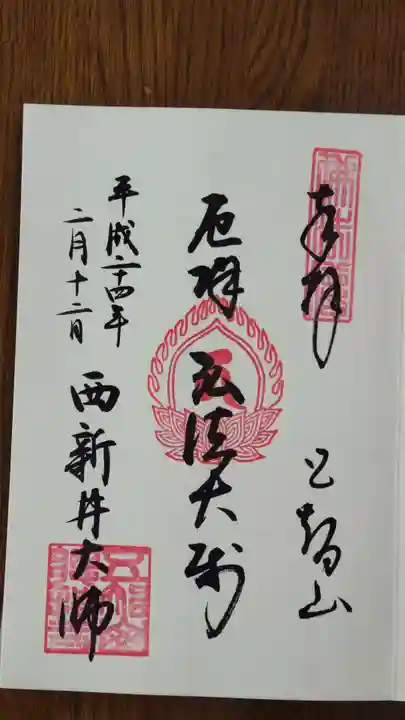 奉拝
五智山
厄除
弘法大師
平成二十四年
二月十二日
西新井大師